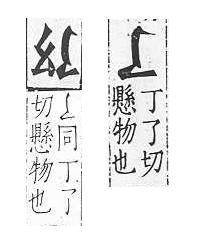 丁了切
懸物也
同丁了
切懸物也